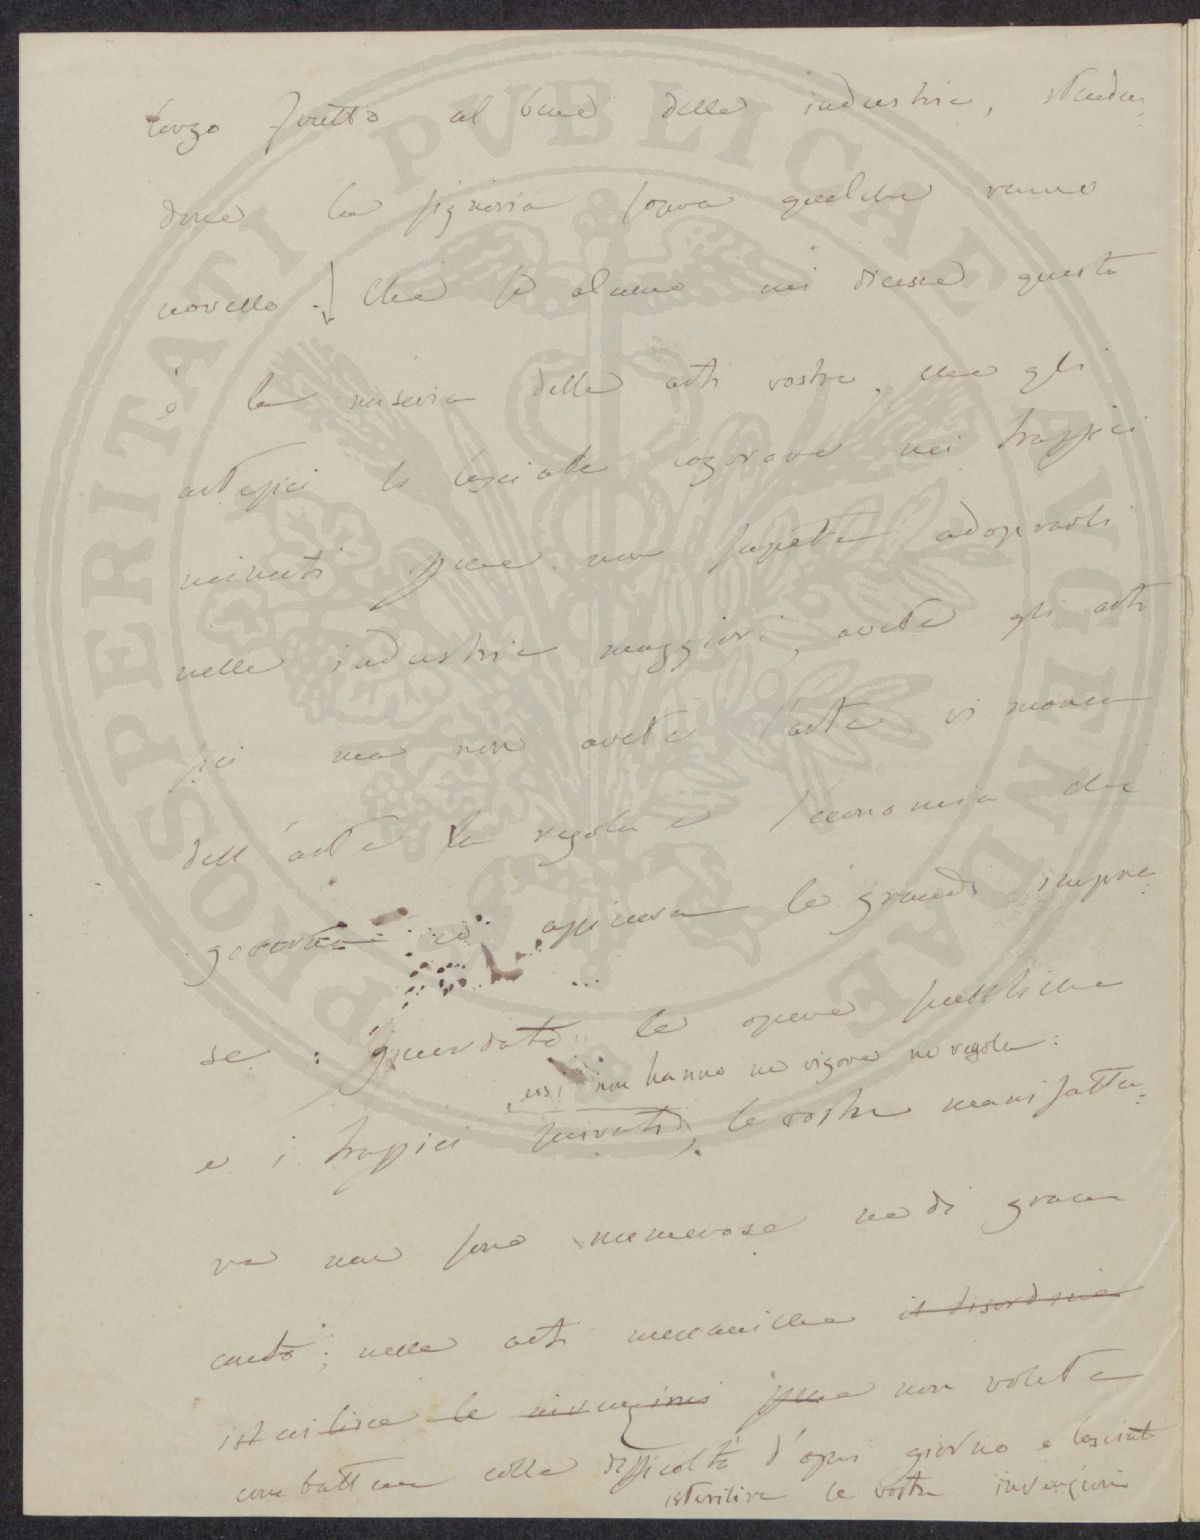 terzo frutto al bene della industria, studian
done la signoria sopra qualche ramo
novello. Che se alcuno mi dicesse questa
è la miseria delle arti vostre, che gli
artefici li lasciate logorare nei traffici
minuti pure non sapete adoprarli
nelle industrie maggiori, avete gli arte
fici ma non avete l'arte vi manca
dell'arte la regola e l'economia che
governa le grandi impre
se: guardate le opere pubbliche
essi non hanno nè vigore nè regola:
e i traffici privati, le vostre manifattu-
re non sono numerose nè di gran
conto; nelle arti meccaniche il disordine
isterilisce le invenzioni pure non volete
combattere colla difficoltà d'ogni giorno e lasciate
isterilire le vostre invenzioni
PROSPERITATI PVBLICAE AVGENDAE